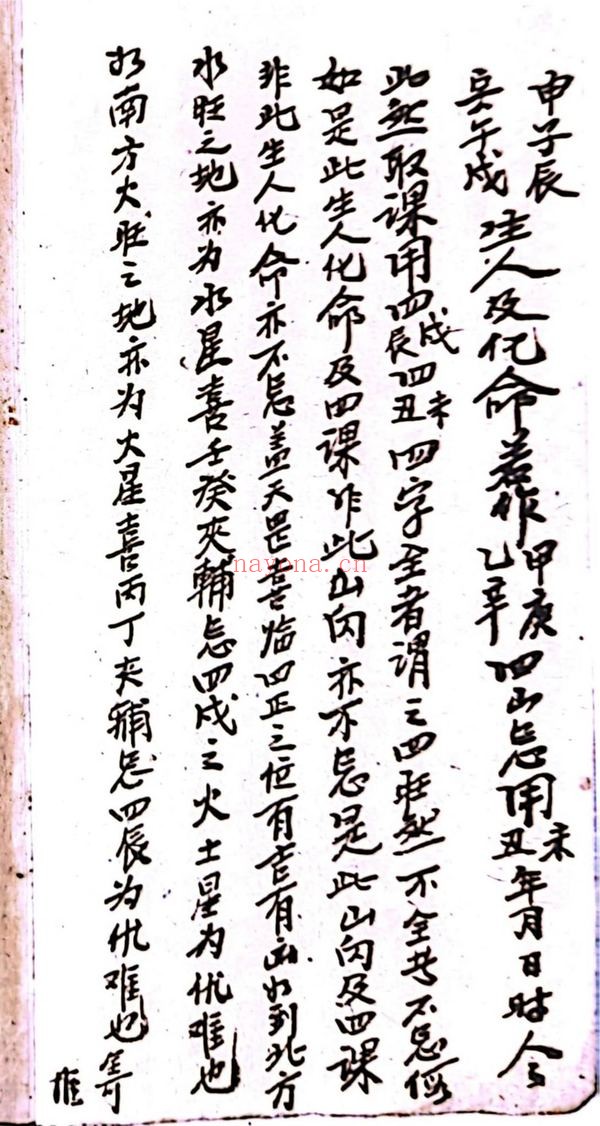 申子辰
寅午戌 生人及化命若作甲庚乙辛四山忌用丑未年月日时今
此然取课用四辰戌四丑未四字全者谓之四旺然不全者不忌假
如是此生人化命及四课作此山向亦不忌是此山向及四课
非此生人化命亦不忌盖天罡喜临四正之位有吉有凶如到北方
水旺之地亦为水星喜壬癸夹辅忌四戌之火土星为仇难也
如南方火旺之地亦为火星喜丙丁夹辅忌四辰为仇难也
推
nayona.cn